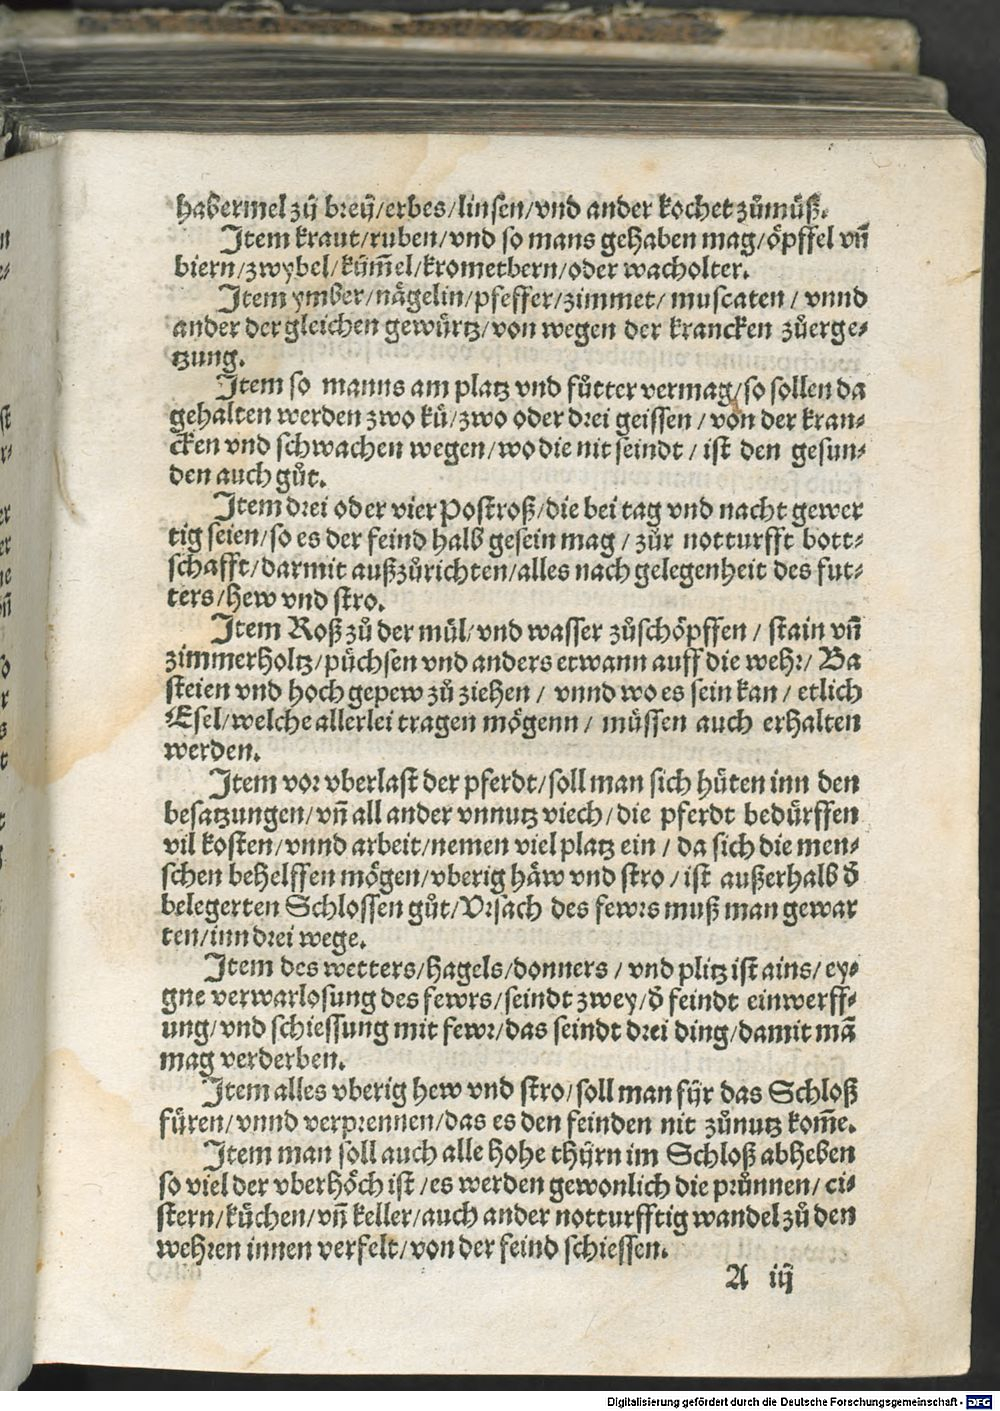 habermel zů breÿ/erbes/linsen/vnd ander kochet zůmůß.
Item kraut/ruben/vnd so mans gehaben mag/öpffel vñ
biern/zwybel/kům̃el/krometbern/oder wacholter.
Item ymber/nägelin/pfeffer/zimmet/ muscaten / vnnd
ander der gleichen gewürtz/von wegen der krancken zůerge⸗
tzung.
Item so manns am platz vnd fůtter vermag/so sollen da
gehalten werden zwo kü/zwo oder drei geissen / von der kran⸗
cken vnd schwachen wegen/wo die nit seindt / ist den gesun⸗
den auch gůt.
Item drei oder vier Postroß/die bei tag vnd nacht gewer
tig seien/so es der feind halb gesein mag / zůr notturfft bott⸗
schafft/darmit außzůrichten/alles nach gelegenheit des fut⸗
ters/hew vnd stro.
Item Roß zů der mül/vnd wasser zůschöpffen / stain vñ
zimmerholtz/püchsen vnd anders etwann auff die wehr/ Ba
steien vnd hoch gepew zů ziehen / vnnd wo es sein kan / etlich
Esel/welche allerlei tragen mögenn / müssen auch erhalten
werden.
Item vor vberlast der pferdt/soll man sich hüten inn den
besatzungen/vñ all ander vnnutz viech/die pferdt bedürffen
vil kosten/vnnd arbeit/nemen viel platz ein / da sich die men⸗
schen behelffen mögen/vberig häw vnd stro / ist außerhalb d̄
belegerten Schlossen gůt/Vrsach des fewrs muß man gewar
ten/inn drei wege.
Item des wetters/hagels/donners / vnd plitz ist ains/ ey⸗
gne verwarlosung des fewrs/seindt zwey/d̄ feindt einwerff⸗
ung/vnd schiessung mit fewr/das seindt drei ding/damit mã
mag verderben.
Item alles vberig hew vnd stro/soll man für das Schloß
füren/vnnd verprennen/das es den feinden nit zůnutz kom̃e.
Item man soll auch alle hohe thürn im Schloß abheben
so viel der vberhöch ist/es werden gewonlich die průnnen/ ci⸗
stern/küchen/vñ keller/auch ander notturfftig wandel zů den
wehren innen verfelt/von der feind schiessen.
A iij
Digitalisierung gefördert durch die Deutsche Forschungsgemeinschaft - DFG